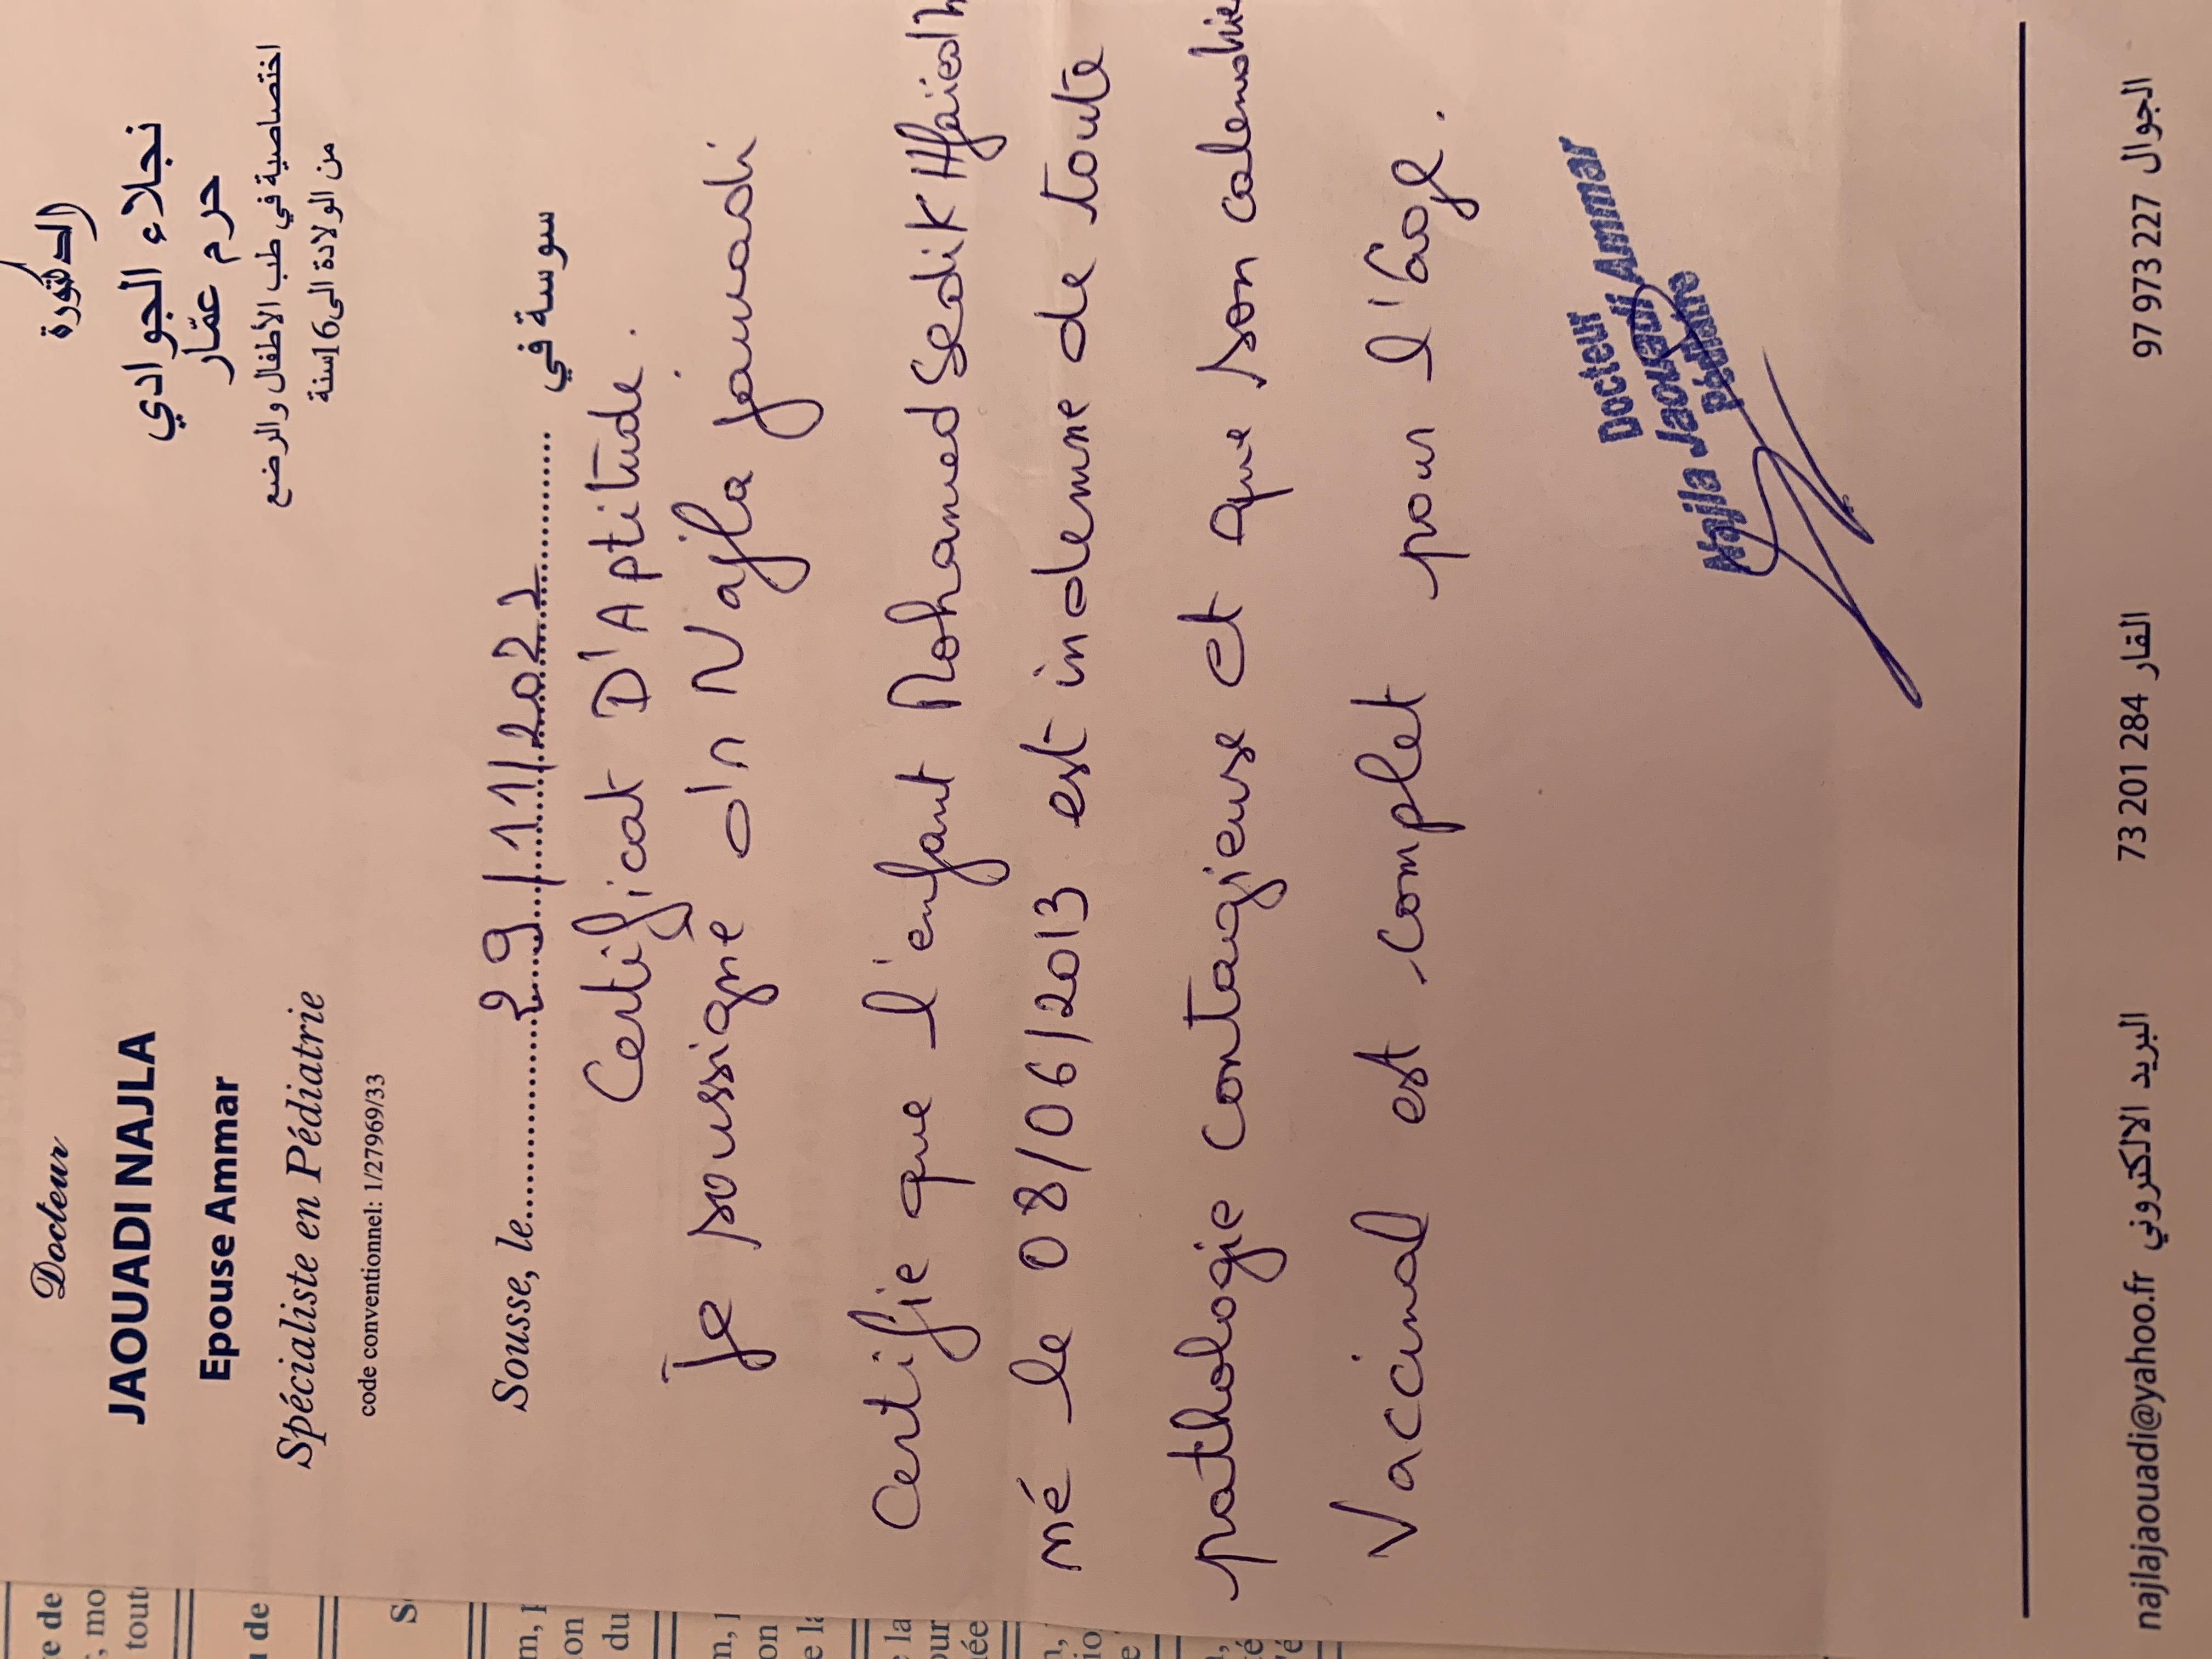 Docteur
JAOUADI NAJLA
Epouse Ammar
Spécialiste en Pédiatrie
code conventionnel: 1/27969/33
الدكتورة
نجلاء الجوادي
حرم عمّار
اختصاصية في طب الأطفال والرضع
من الولادة الى 16 سنة
Sousse, le 29/11/2021 سوسة في
Certificat D'Aptitude.
Je soussigne Dr Najla jaouadi
Certifie que l'enfant Mohamed Sedik Hfaiedh
né le 08/06/2013 est indemne de toute
pathologie contagieuse et que son calendrie
Vaccinal est complet pour l'âge.
Docteur
Najla Jaouadi Ammar
Pédiatre
najlajaouadi@yahoo.fr البريد الالكتروني 73 201 284 القار 97 973 227 الجوال